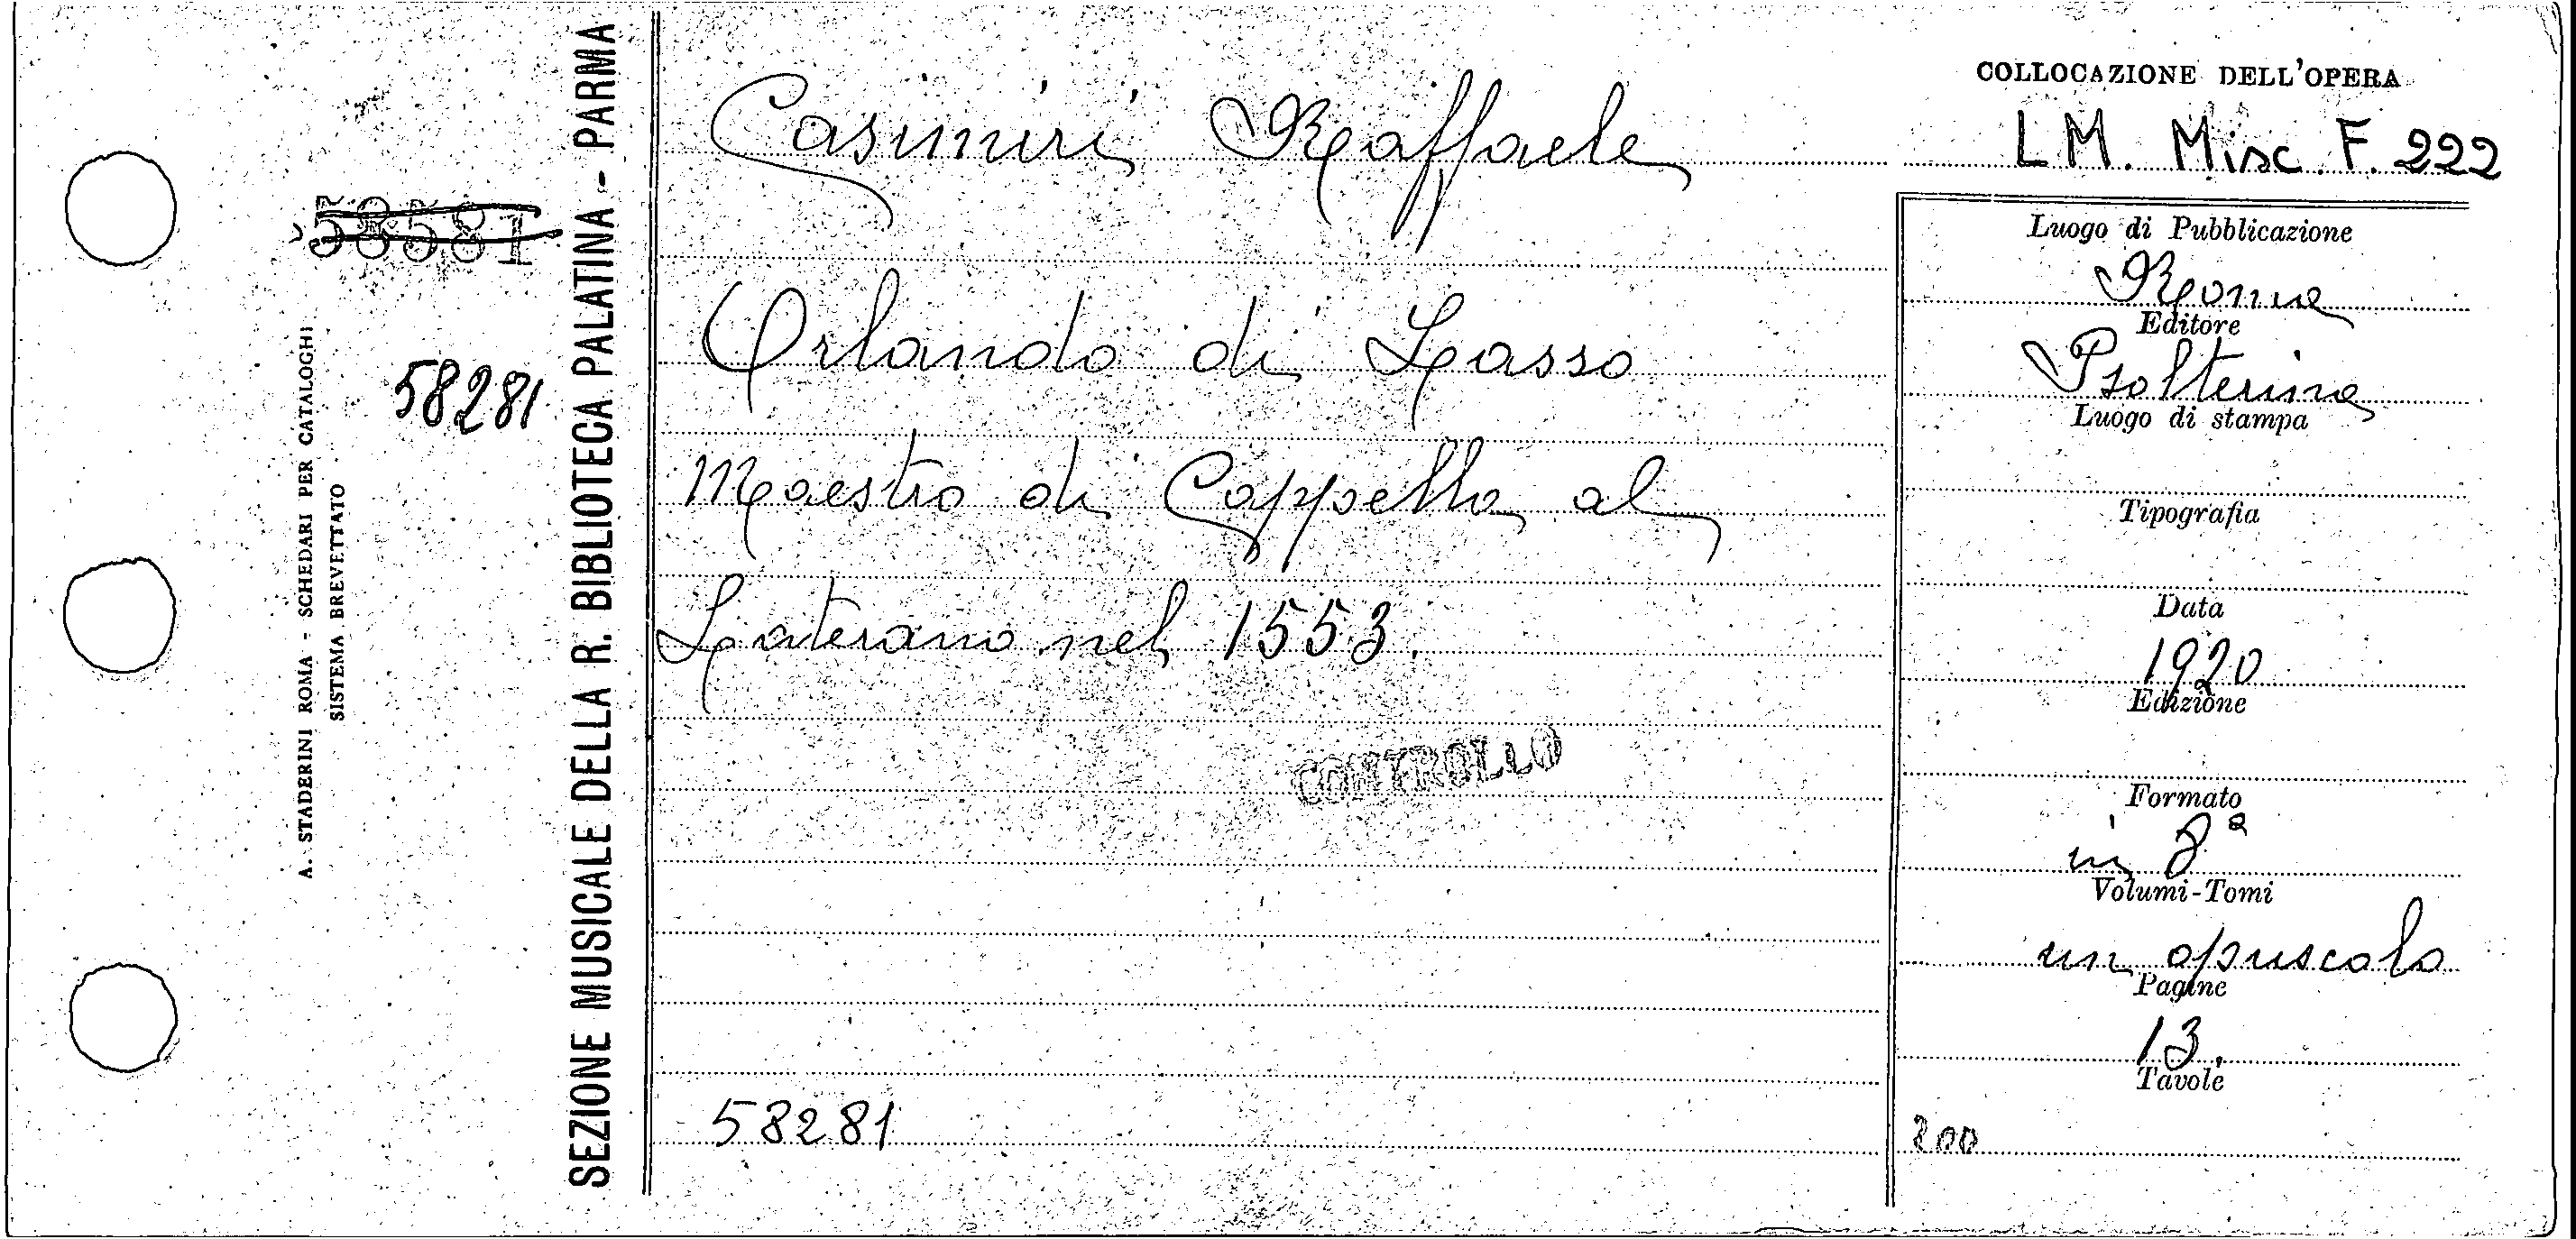 Casimiri Raffaele
Orlando di Lasso
Maestro di Cappella al
Laterano nel 1553.
CONTROLLO
58281
COLLOCAZIONE DELL'OPERA
LM. Misc. F. 222
Luogo di Pubblicazione
Roma
Editore
Psalterium
Luogo di stampa
Tipografia
Data
1920
Edizione
Formato
in 8ª
Volumi-Tomi
un opuscolo
Pagine
13.
Tavole
200
58581
58281
A. STADERINI ROMA - SCHEDARI PER CATALOGHI
SISTEMA BREVETTATO
SEZIONE MUSICALE DELLA R. BIBLIOTECA PALATINA - PARMA